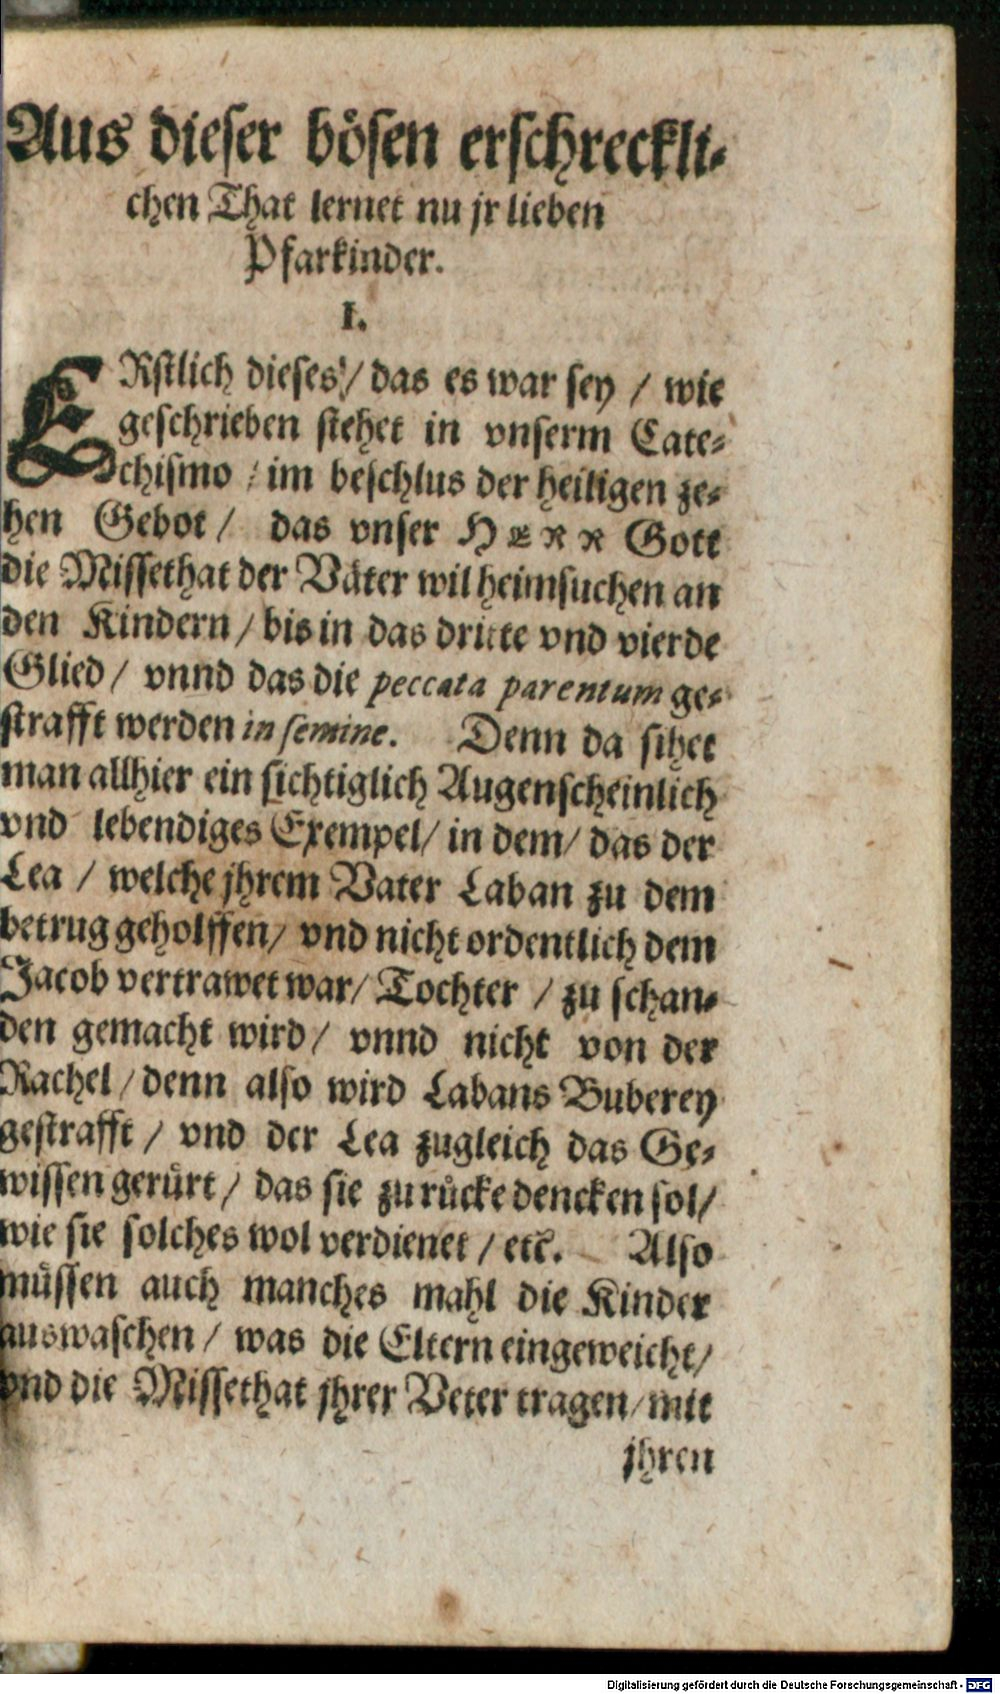 Aus dieser bösen erschreckli-
chen That lernet nu jr lieben
Pfarkinder.
I.
ERstlich dieses / das es war sey / wie
geschrieben stehet in vnserm Cate-
chismo / im beschlus der heiligen ze-
hen Gebot / das vnser HERR Gott
die Missethat der Väter wil heimsuchen an
den Kindern / bis in das dritte vnd vierde
Glied / vnnd das die peccata parentum ge-
strafft werden in semine. Denn da sihet
man allhier ein sichtiglich Augenscheinlich
vnd lebendiges Exempel / in dem / das der
Lea / welche jhrem Vater Laban zu dem
betrug geholffen / vnd nicht ordentlich dem
Jacob vertrawet war / Tochter / zu schan-
den gemacht wird / vnnd nicht von der
Rachel / denn also wird Labans Buberey
gestrafft / vnd der Lea zugleich das Ge-
wissen gerürt / das sie zu rücke dencken sol /
wie sie solches wol verdienet / etc. Also
müssen auch manches mahl die Kinder
auswaschen / was die Eltern eingeweicht /
vnd die Missethat jhrer Veter tragen / mit
jhren
Digitalisierung gefördert durch die Deutsche Forschungsgemeinschaft - DFG